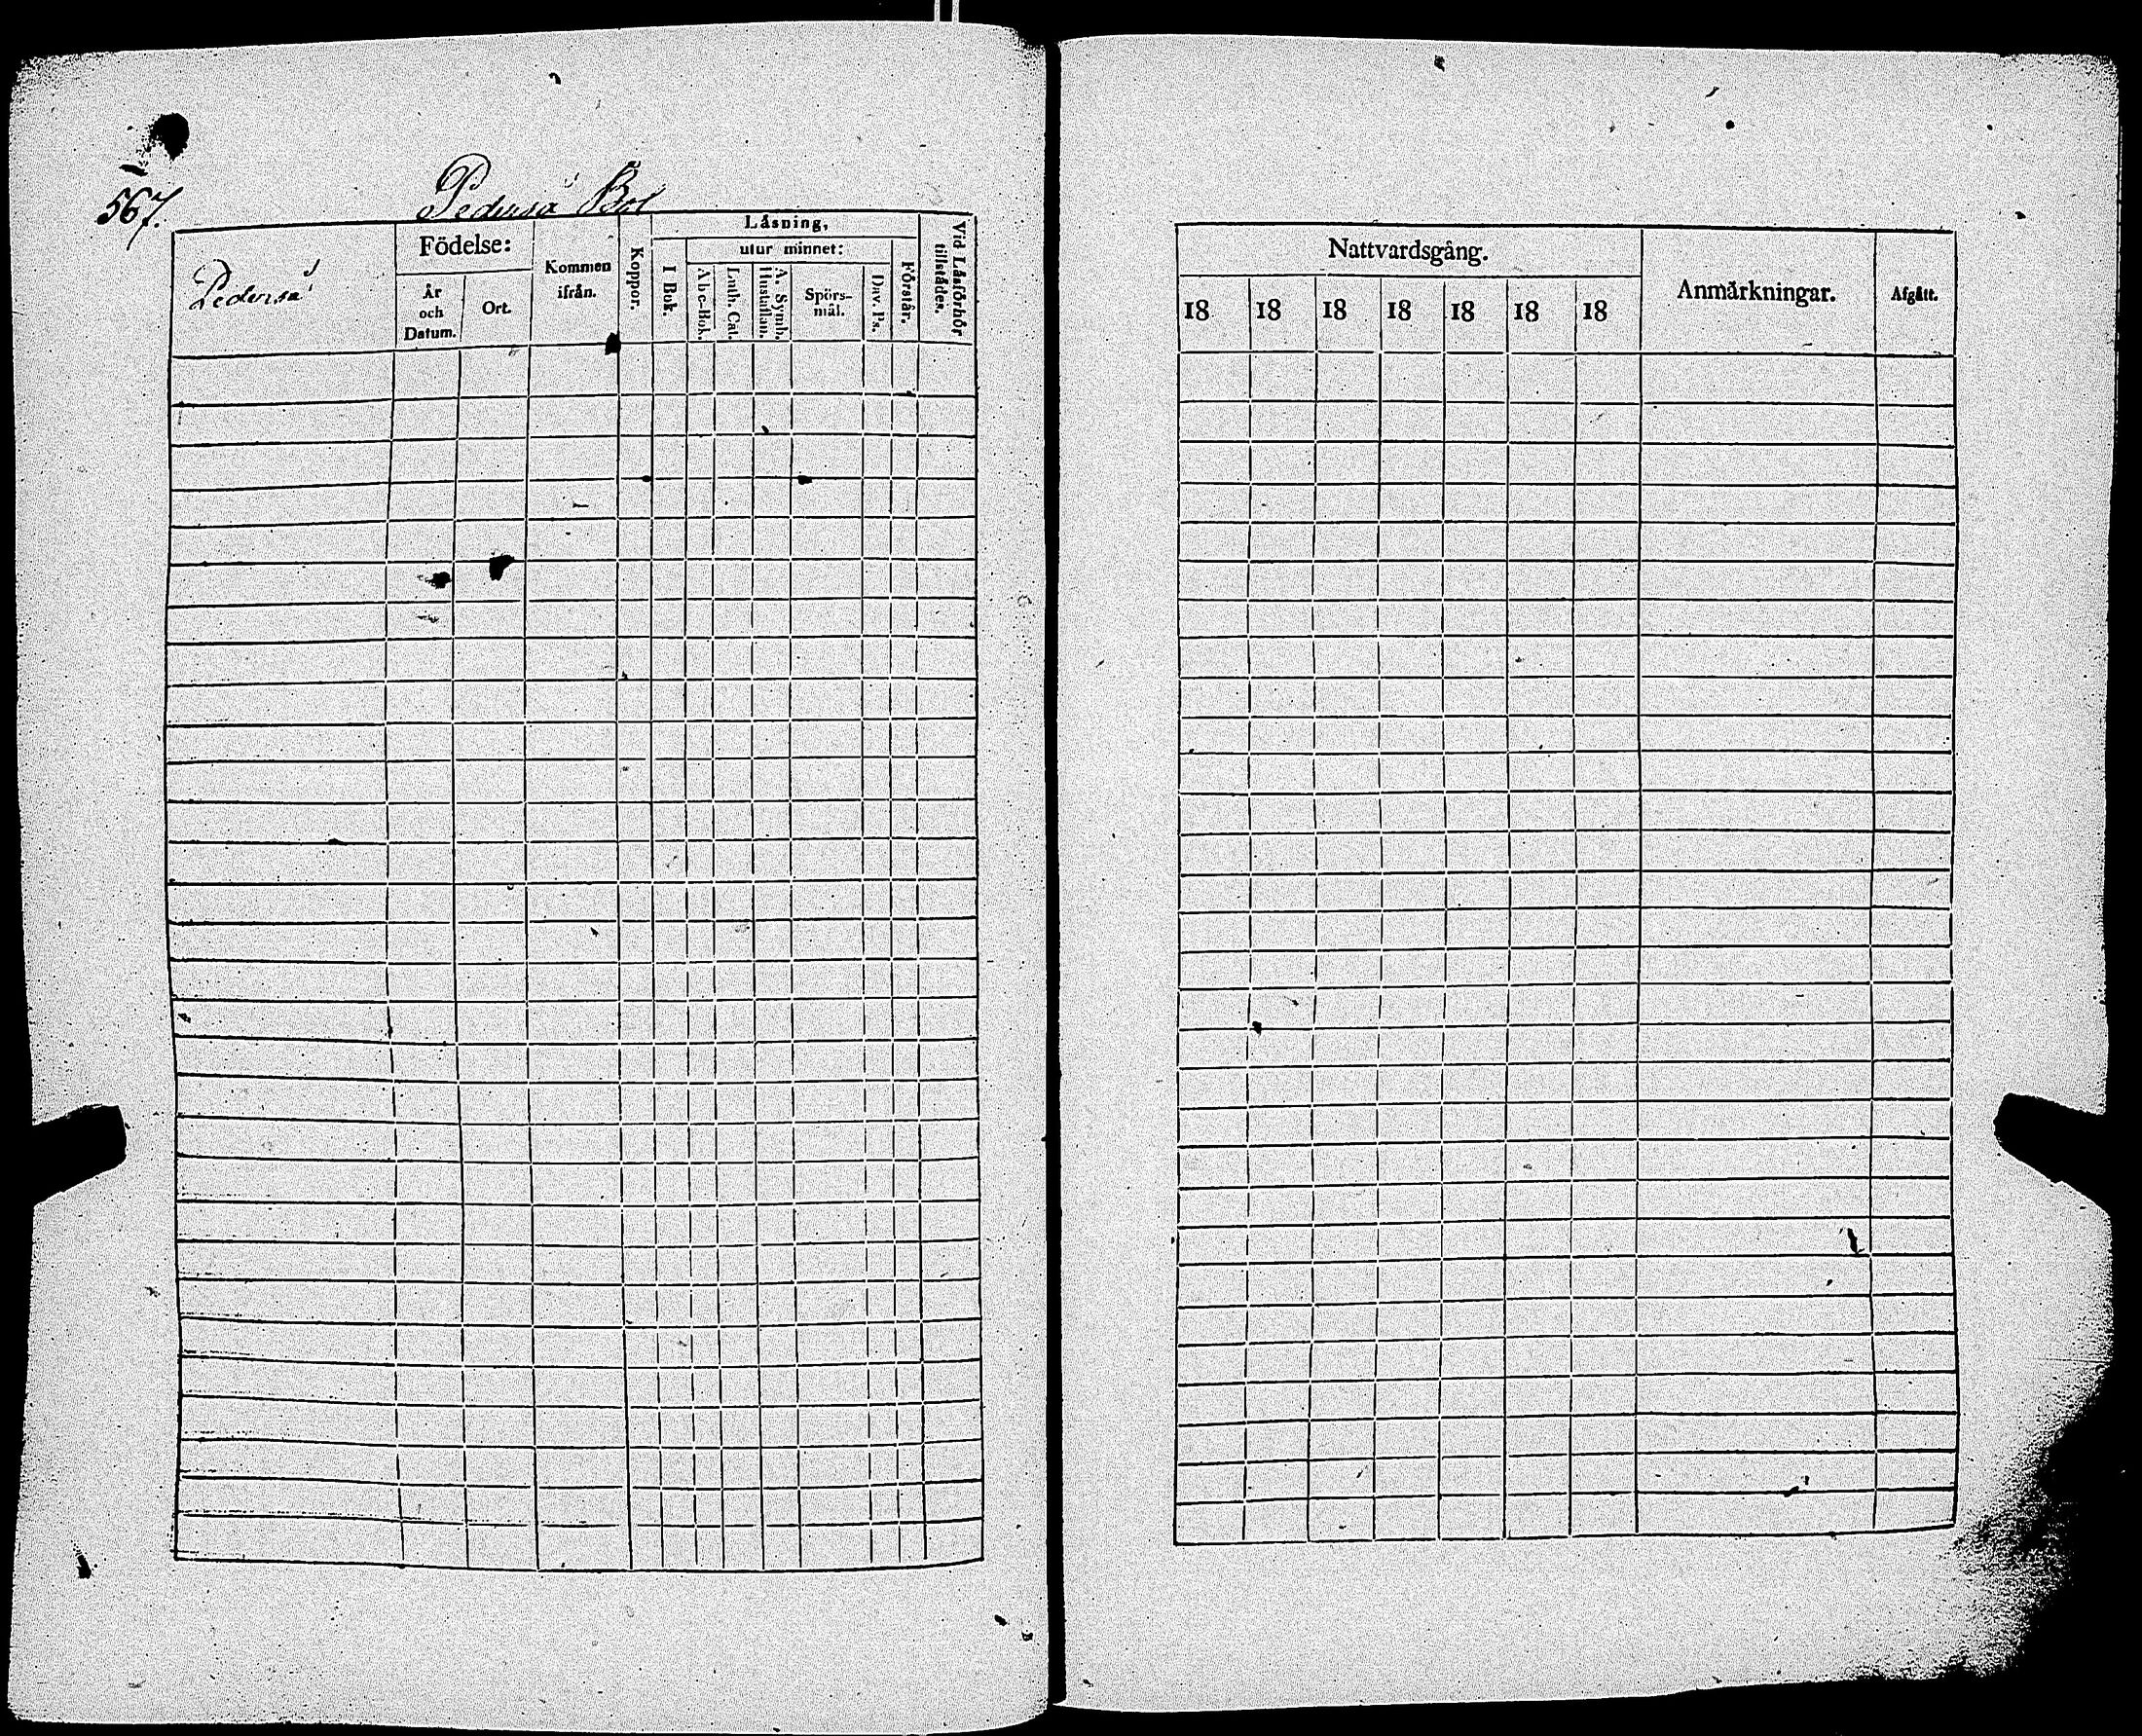 567.
Pederså Bol
Pederså
Födelse:
År
och
Datum.
Ort.
Kommen
ifrån.
Koppor.
Läsning,
I Bok.
utur minnet:
Abc-Bok.
Luth. Cat.
A. Symb.
Hustaflan.
Spörs-
mål.
Dav. Ps.
Förstår.
Vid Läsförhör
tillstädes.
Nattvardsgång.
18 18 18 18 18 18 18
Anmärkningar.
Afgått.